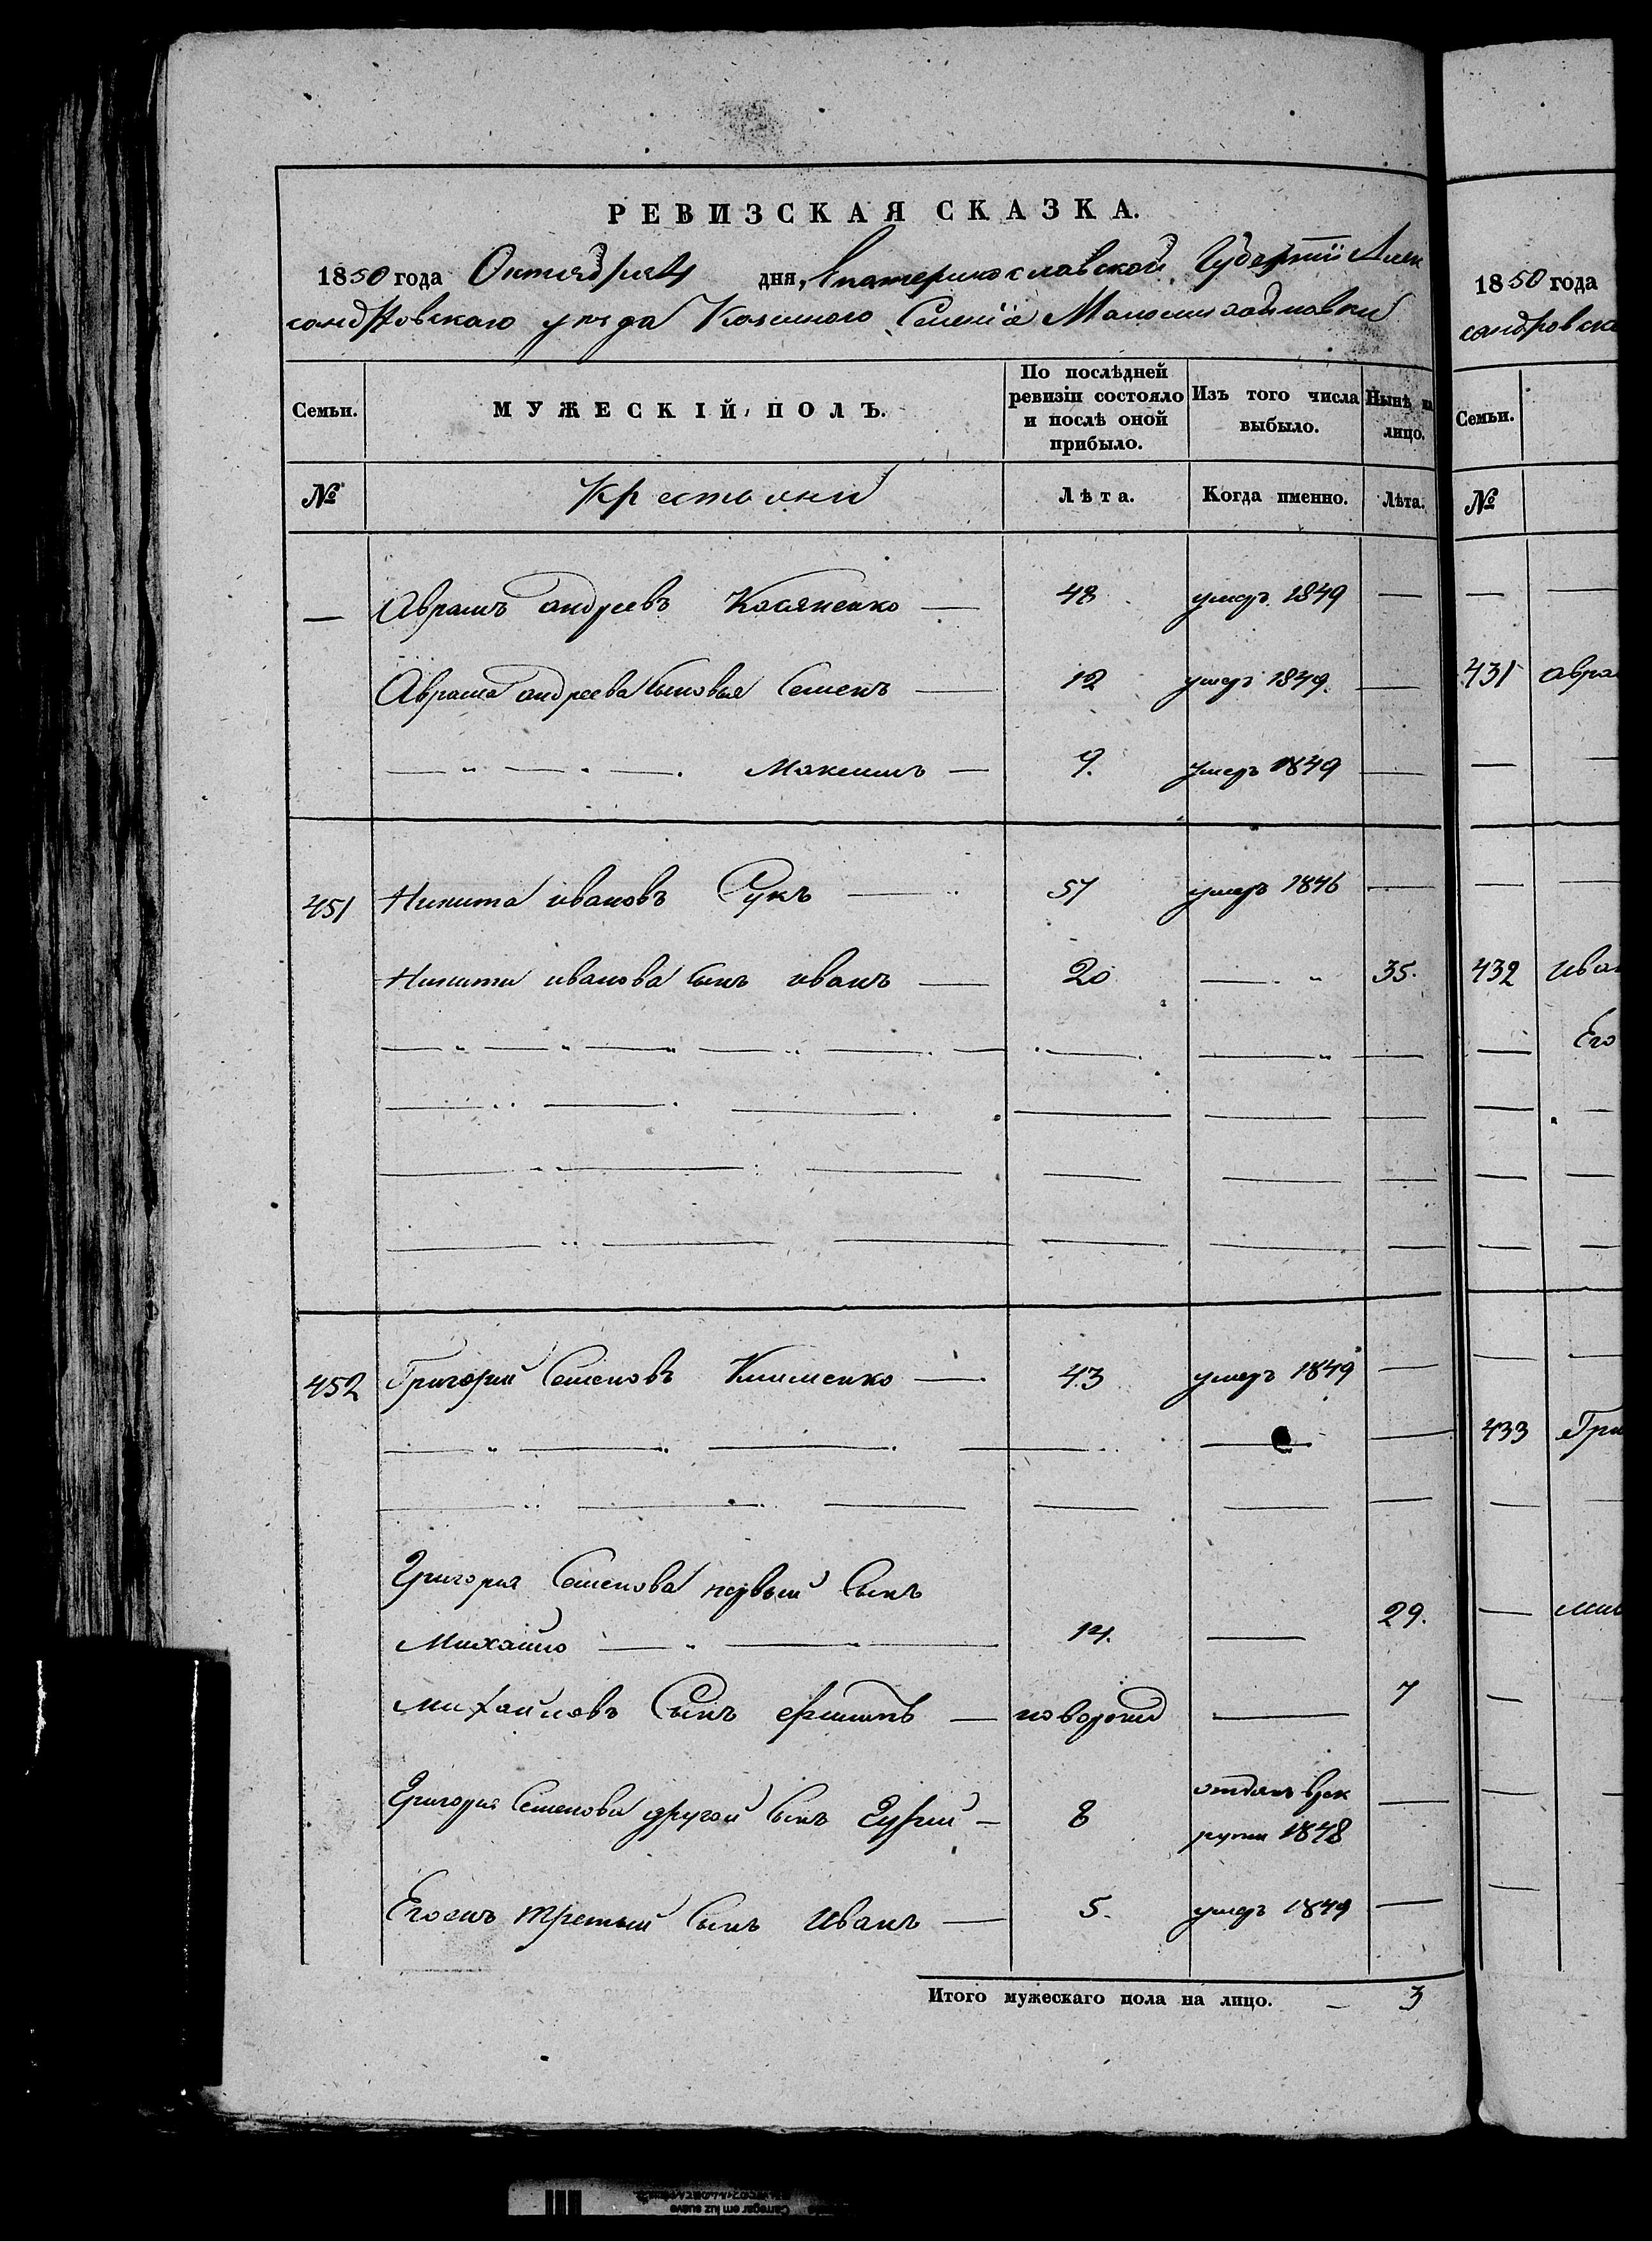 РЕВИЗСКАЯ СКАЗКА.
1850 года Октября 4 дня, Екатеринославской Губерніи Алек
сандровскаго уезда Казенного Селенія Маломихайловки
Семьи. МУЖЕСКІЙ ПОЛЪ. По послѣдней ревизіи состояло и послѣ оной прибыло. Изъ того числа выбыло. Нынѣ на лицо.
№ Крестьяни Лѣта. Когда именно. Лѣта.
— Аврамъ андреевъ Касяненко — 48 умеръ 1849 —
Аврама андреева сыновья Семенъ — 12 умеръ 1849. —
— " — " —. Максимъ — 9. умеръ 1849 —
451 Никита ивановъ Сукъ — 57 умеръ 1846 —
Никиты иванова сынъ иванъ — 20 — " 35.
452 Григорий Семеновъ Клименко — 43 умеръ 1849 —
Григория Семенова первый сынъ
Михайло — " — 14. — 29.
михайловъ Сынъ филипъ — новорожд — 7
Григория Семенова другой сынъ Гурий — 8 отданъ врек
руты 1848 —
Егоежъ третий сынъ Иванъ — 5. умеръ 1849 —
Итого мужескаго пола на лицо. — 3
1850 года
сандровска
Семьи.
№
431 Авра
432 Иван
Его
433 Гри
—
мих